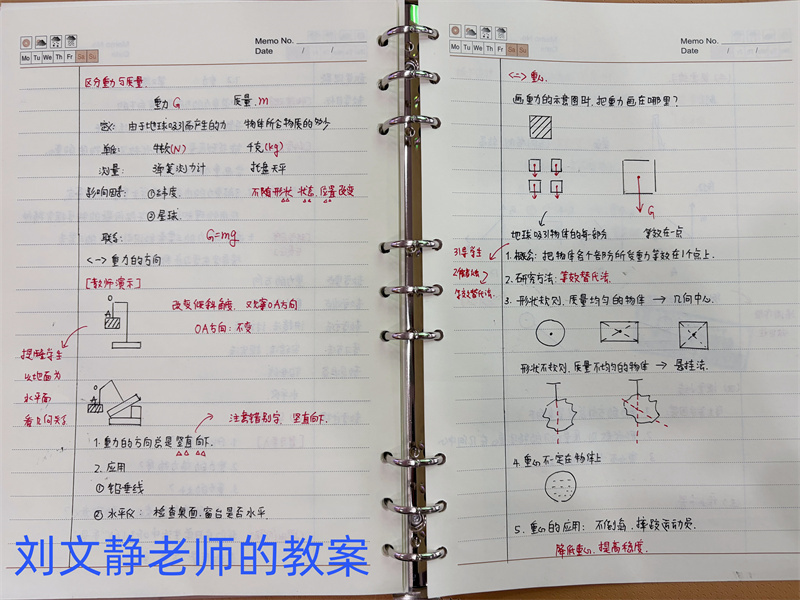 Memo No.
Date / /
Mo Tu We Th Fr Sa Su
区分重力与质量.
重力 G 质量. m
定义: 由于地球吸引而产生的力 物体所含物质的多少
单位: 牛顿(N) 千克(kg)
测量: 弹簧测力计 托盘天平
影响因素 ①纬度. 不随形状 状态, 位置改变
②星球.
联系: G=mg
<一> 重力的方向
[教师演示]
改变倾斜角度, 观察OA方向
OA方向: 不变
O
A
提醒学生
以地面为
水平面
看几何关系
O
A
注意错别字, 竖直向下.
1. 重力的方向总是竖直向下.
2. 应用
① 铅垂线
② 水平仪: 检查桌面, 窗台是否水平.
刘文静老师的教案
Memo No.
Date / /
Mo Tu We Th Fr Sa Su
<二> 重心.
画重力的示意图时, 把重力画在哪里?
G
地球吸引物体的每一部分 等效在一点
引导学生
了解
等效替代法.
1. 概念: 把物体各个部分所受重力等效在1个点上.
2. 研究方法: 等效替代法.
3. 形状规则, 质量均匀的物体 → 几何中心.
形状不规则, 质量不均匀的物体 → 悬挂法.
4. 重心不一定在物体上
5. 重心的应用: 不倒翁, 摔跤运动员.
降低重心, 提高稳度.